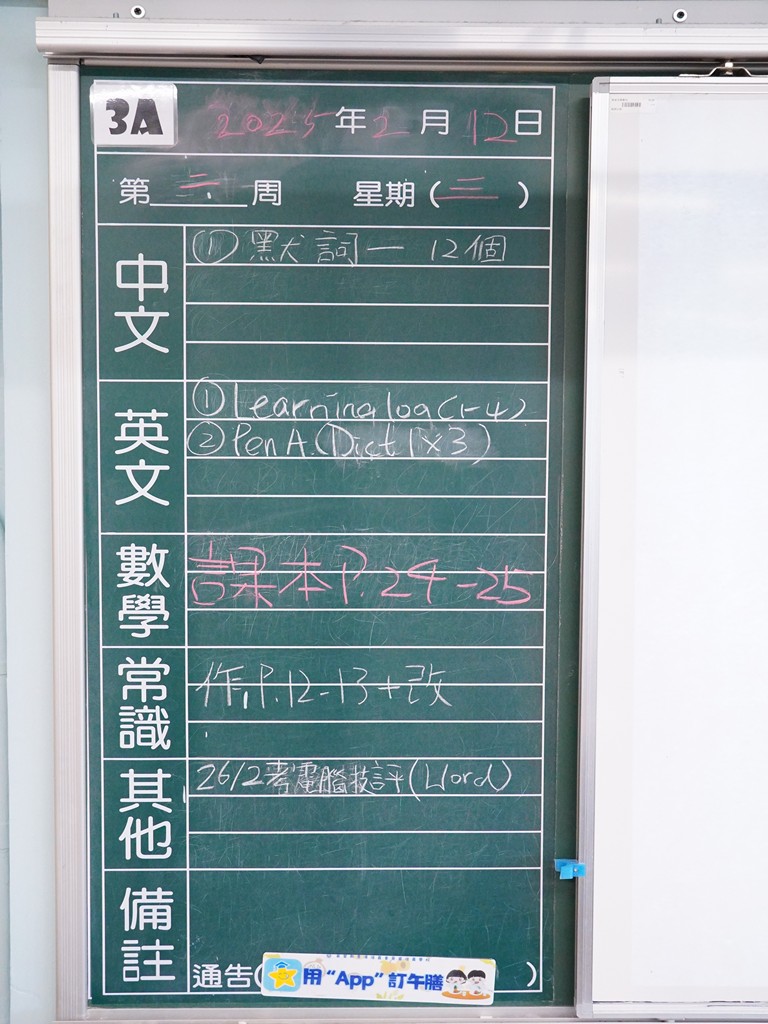 3A 2025年2月12日
第二周 星期(三)
中文
① 默詞一 12個
英文
① Learning log (1-4)
② Pen A. (Dict 1×3)
數學
課本 P.24-25
常識
作.P.12-13+改
其他
26/2考電腦技評(Word)
備註
通告( )
用“App”訂午膳